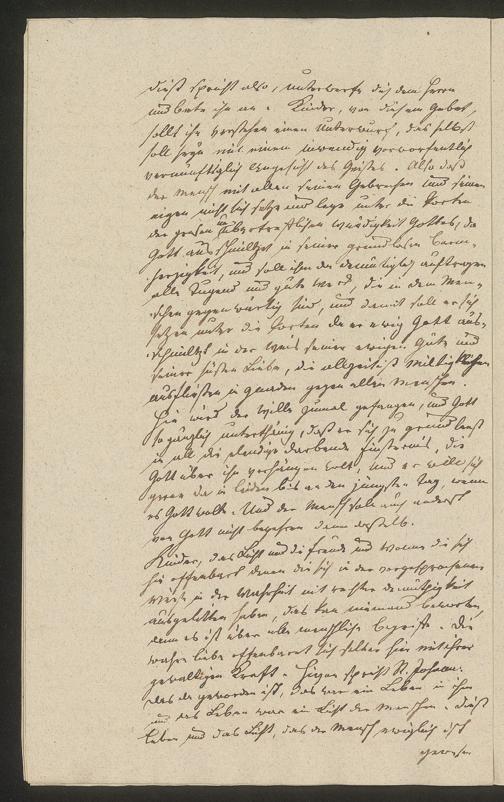 dieß spricht also, unterwerfe dich dem Herrn
und bete ihn an. Kinder, von diesem Gebet,
sollt ihr verstehen einen Unterwurf, das selbst
soll seyn mit einem inwendig vorworfentlich
vernünftiglich Angesicht des Geistes. Also daß
der Mensch mit allen seinen Gebrechen und seinem
eigen nicht sich setze und lege unter die Porten
der großen unübertrefflichen würdigkeit Gottes, da
Gott ausschmiltzet in seiner grundlosen Barm-
herzigkeit, und soll ihm da demütiglich auftragen
alle Tugend und gute Werck, die in dem Men-
schen gegenwärtig sind, und damit soll er sich
setzen unter die Porten da er ewig Gott aus-
schmiltzt in der weis seiner ewigen Güte und
seiner süßen Liebe, die allzeit ist
ausfließen in gnaden gegen allen Menschen.
Hie wird der Wille zumal gefangen, und Gott
so gänzlich unterthänig, daß er sich zu grund least
in all die elendige darbende Finsternis, die
Gott über ihn verhängen wolt, und er wolle sich
gerne da in leiden bis an den jüngsten Tag, wenn
es Gott wolte. Und der Mensch soll auch anders
von Gott nicht begehren denn deßelb.
Kinder, das Licht und die freude und Wonne die sich
hie offenbart denen die sich in der vorgesprochenen
weise in der Wahrheit mit rechter demüthigkeit
ausgelitten haben, das kan niemand beworten,
denn es ist über alle menschliche begriffe. Die
wahre liebe offenbaret sich selber hie mit ihrer
gewaltigen Kraft. Hievon spricht St. Johann:
das da geworden ist, das war ein Leben in ihm
und das Leben war ein Licht der Menschen. Dieß
Leben und das Licht, das der Mensch ewiglich ist
gewesen